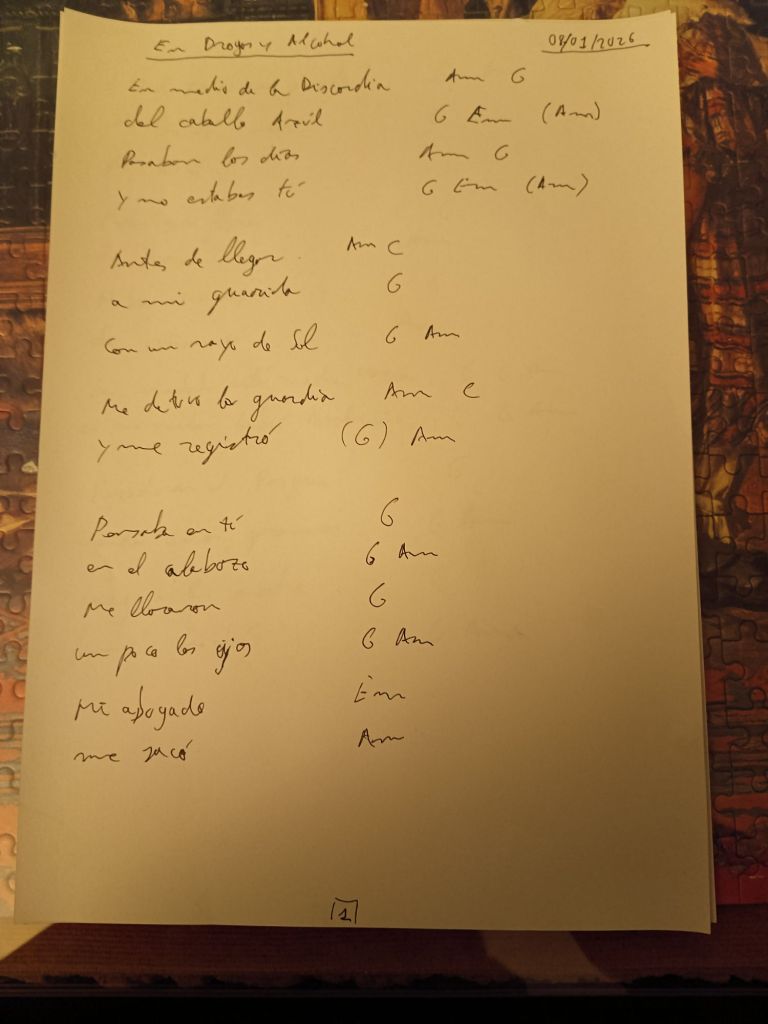 En Drogas y Alcohol 08/01/2026
En medio de la Discordia Am G
del caballo Azul G Em (Am)
Pasaban los días Am G
y no estabas tú G Em (Am)
Antes de llegar Am C
a mi guarida G
Con un rayo de Sol G Am
Me detuvo la guardia Am C
y me registró (G) Am
Pensaba en tí G
en el calabozo G Am
Me lloraron G
un poco los ojos G Am
Mi abogado Em
me sacó Am
1